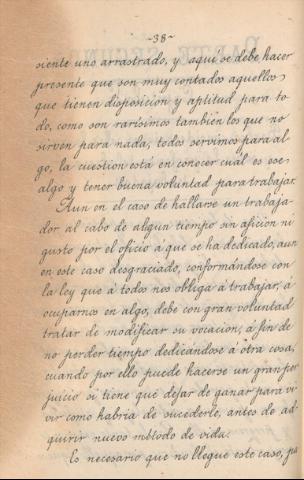 -38-
siente uno arrastrado, y aquí se debe hacer
presente que son muy contados aquellos
que tienen disposicion y aptitud para to-
do, como son rarísimos tambien los que no
sirven para nada; todos servimos para al-
go, la cuestion está en conocer cual es ese
algo y tener buena voluntad para trabajar.
Aun en el caso de hallarse un trabaja-
dor al cabo de algun tiempo sin aficion ni
gusto por el oficio á que se ha dedicado, aun
en este caso desgraciado, conformándose con
la ley que á todos nos obliga á trabajar, á
ocuparnos en algo, debe con gran voluntad
tratar de modificar su vocacion, á fin de
no perder tiempo dedicándose á otra cosa,
cuando por ello puede hacerse un gran per-
juicio si tiene que dejar de ganar para vi-
vir como habria de sucederle, antes de ad-
quirir nuevo método de vida.
Es necesario que no llegue este caso, pa